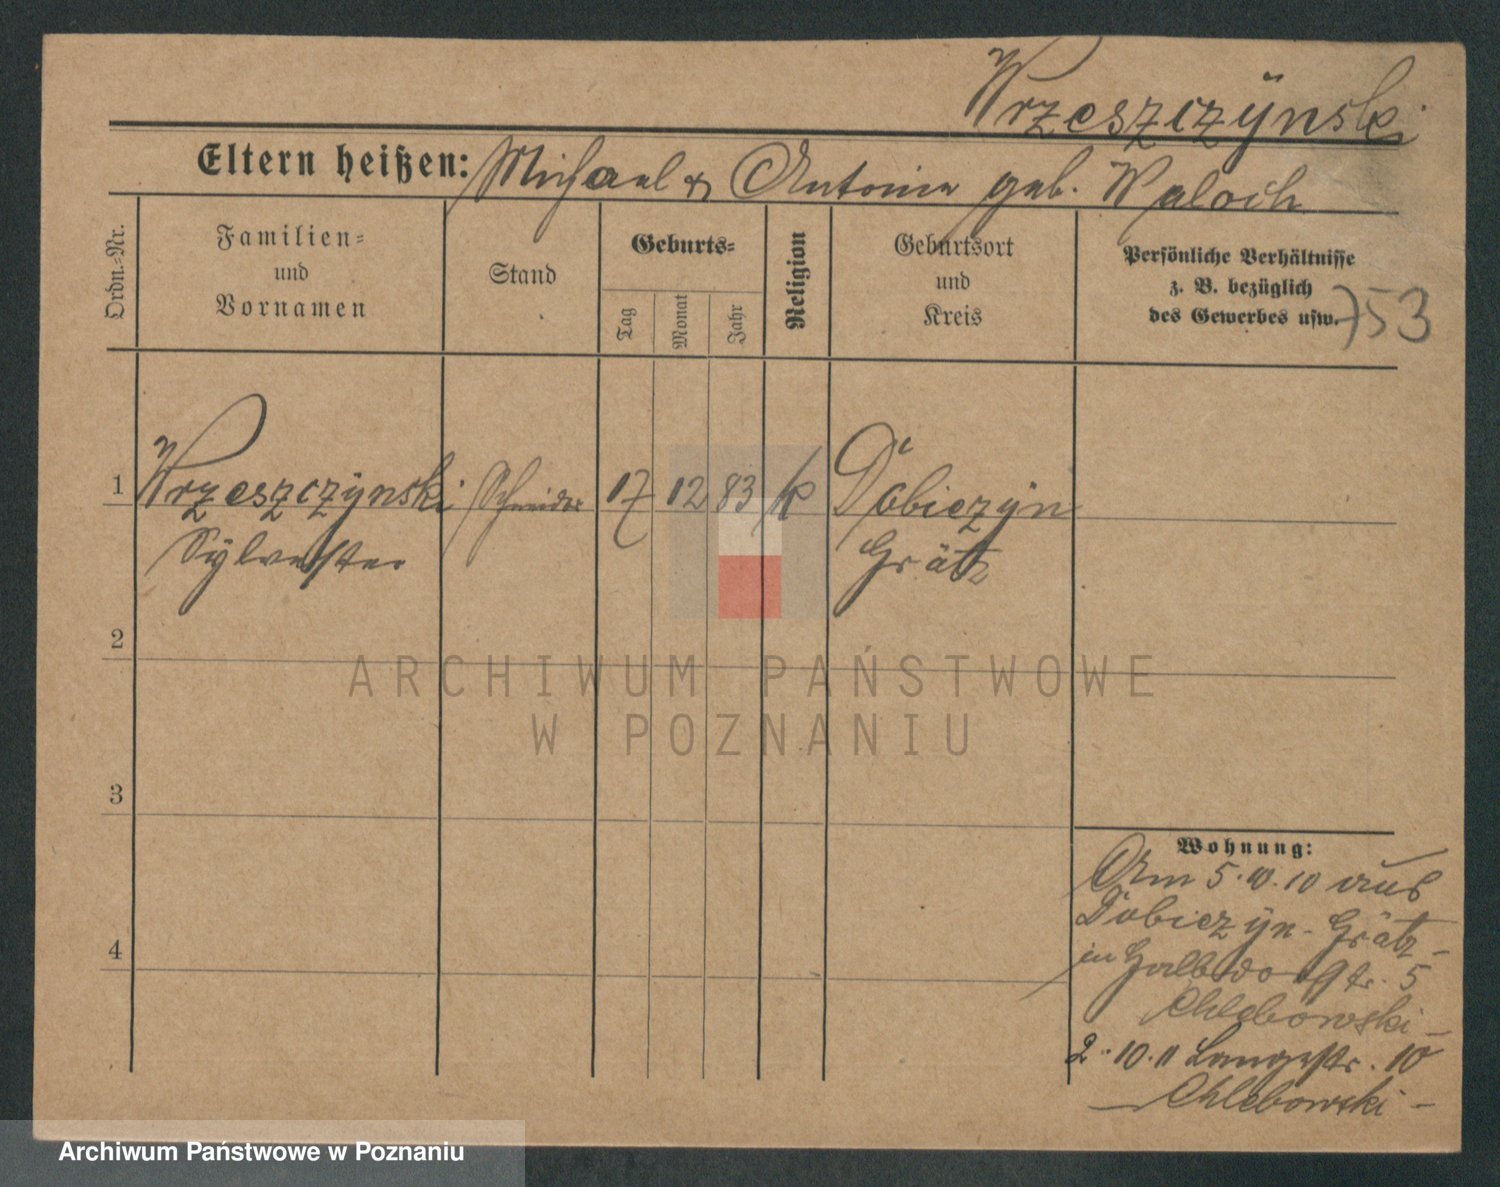 Wrzeszczÿnski
Eltern heißen: Michael & Antonie geb. Waloch
Ordn.-Nr.
Familien- und Vornamen
Stand
Geburts-
Tag
Monat
Jahr
Religion
Geburtsort und Kreis
Persönliche Verhältnisse
z. B. bezüglich
des Gewerbes usw.
753
1 Wrzeszczÿnski Schneider 17 12 83 k Dobieczÿn
Sÿlvester Grätz
2
3
4
Wohnung:
Am 5.10.10 aus
Dobieczÿn - Grätz -
in 5
Chlebowski -
2.10.11 Langestr. 10
Chlebowski -
ARCHIWUM PAŃSTWOWE
W POZNANIU
Archiwum Państwowe w Poznaniu